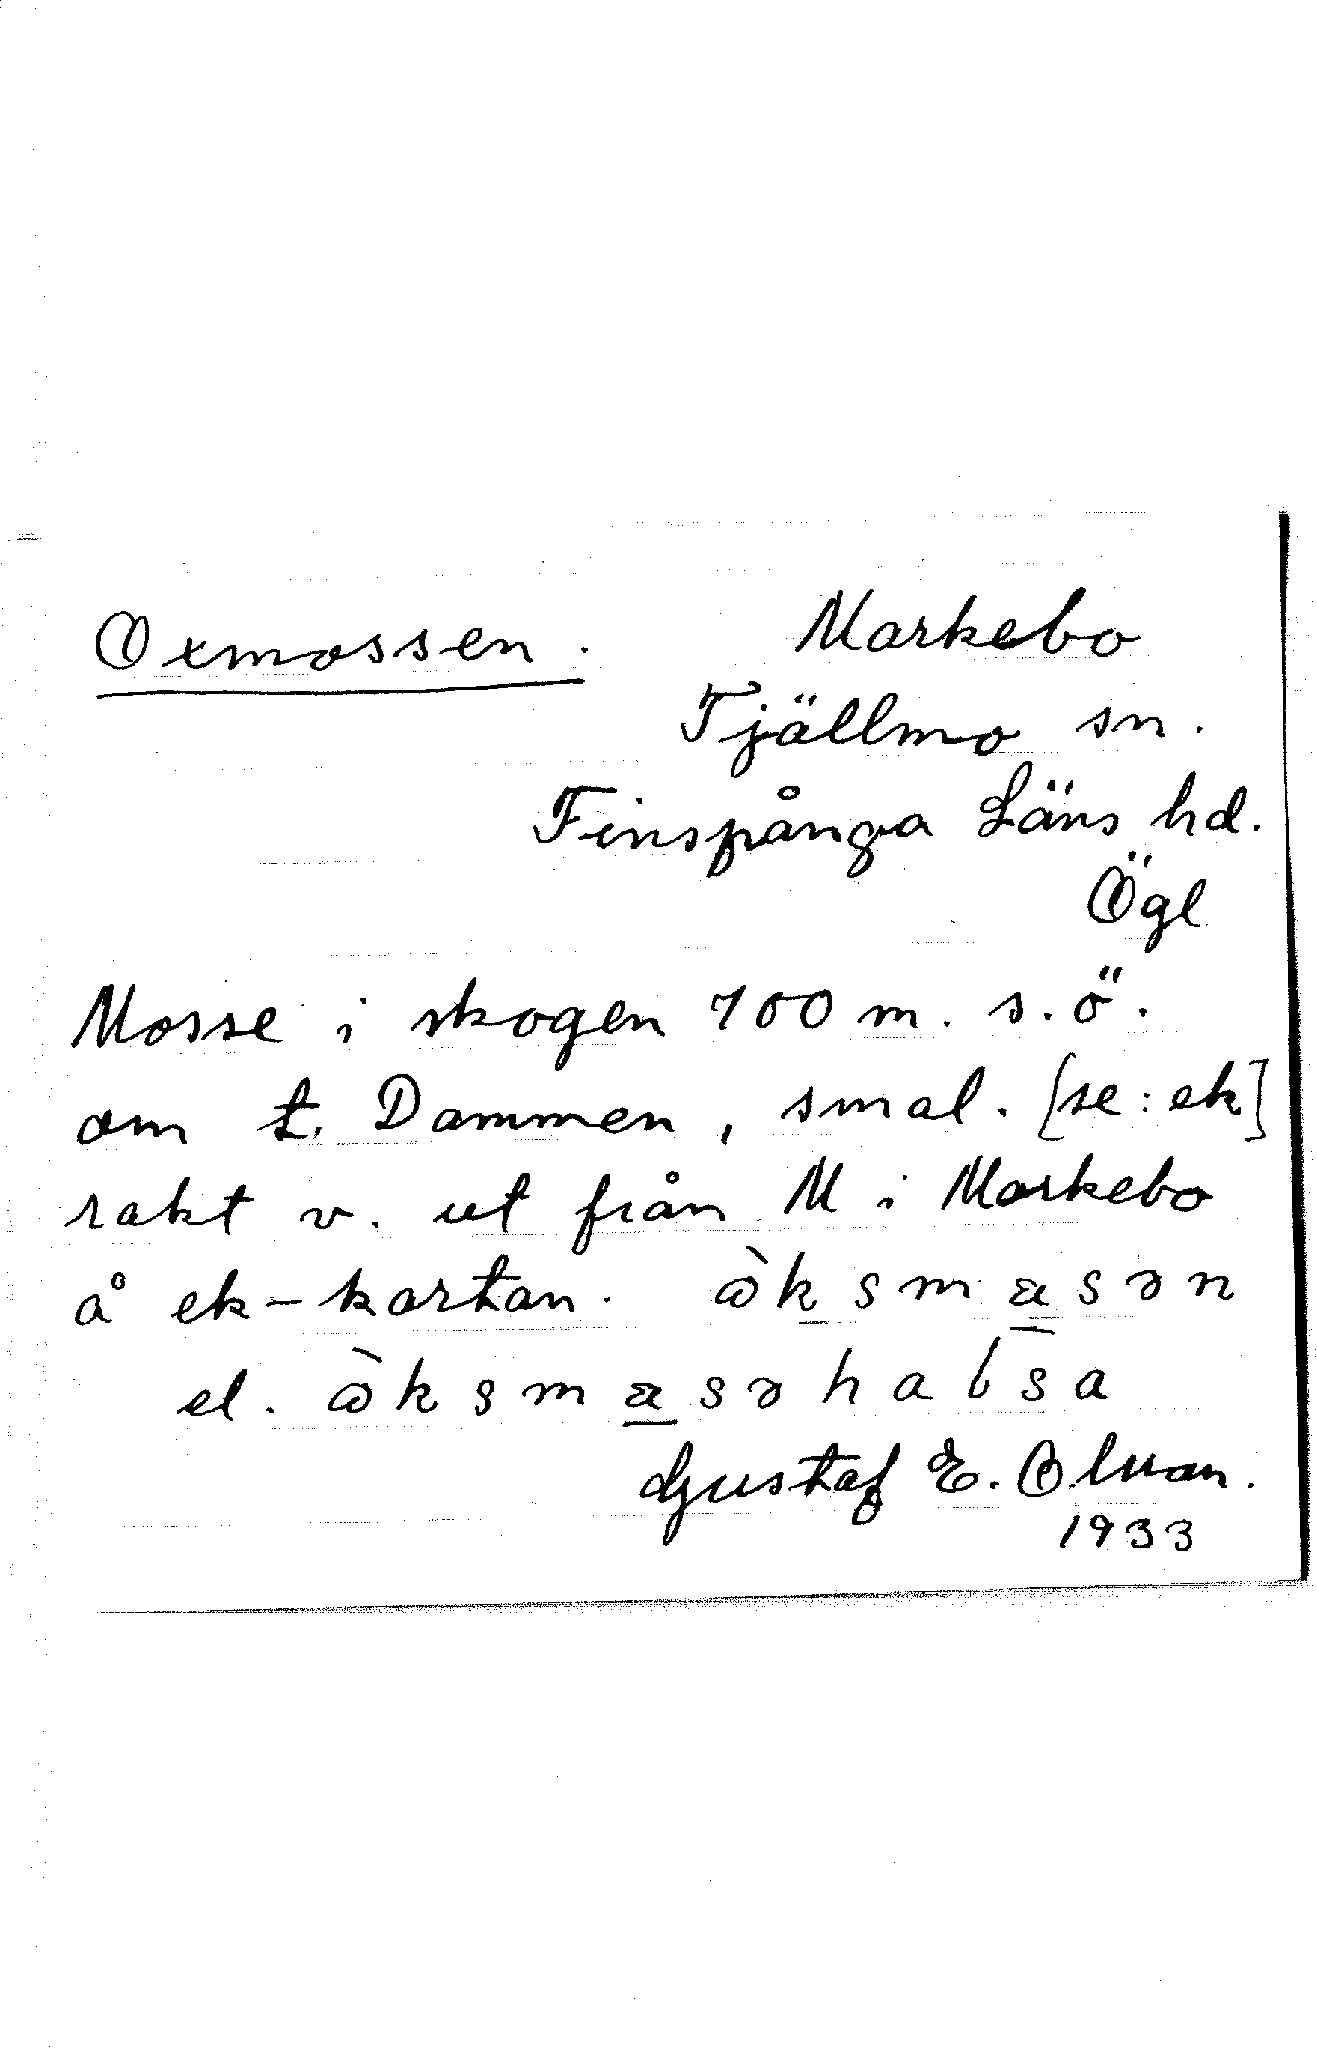 Oxmossen.
Markebo
Tjällmo sn.
Finspånga Läns hd.
Ögl
Mosse i skogen 700 m. s.ö.
om t. Dammen, smal. [se: ek]
rakt v. ut från M i Markebo
å ek-kartan.
el.
Gustaf E. Olsson.
1933